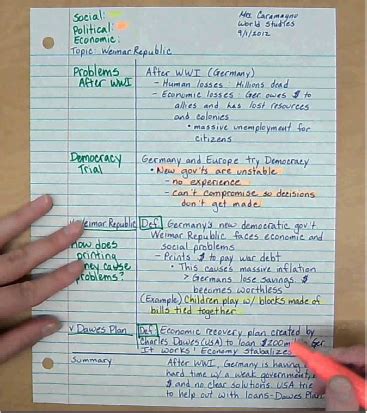 Social:
Political:
Economic:
Topic: Weimar Republic
Mrs. Caramagno
World Studies
9/1/2012
Problems
After WWI
After WWI (Germany)
- Human losses Millions dead
- Economic losses Ger owes $ to
allies and has lost resources
and colonies
• massive unemployment for
citizens
Democracy
Trial
Germany and Europe try Democracy
• New gov'ts are unstable
- no experience
- can't compromise so decisions
don't get made
Weimar Republic
How does
printing
cause
problems?
Def Germany's new democratic gov't
Weimar Republic faces economic and
social problems
- Prints $ to pay war debt
• This causes massive inflation
> Germans lose savings. $
becomes worthless
(Example) Children play w/ blocks made of
bills tied together
v Dawes Plan
Def Economic recovery plan created by
Charles Dawes (USA) to loan $200 Ger.
It works! Economy stabalizes
Summary
After WWI, Germany is having a
hard time w/ a weak government,
$ and no clear solutions. USA
to help out with loans-Dawes